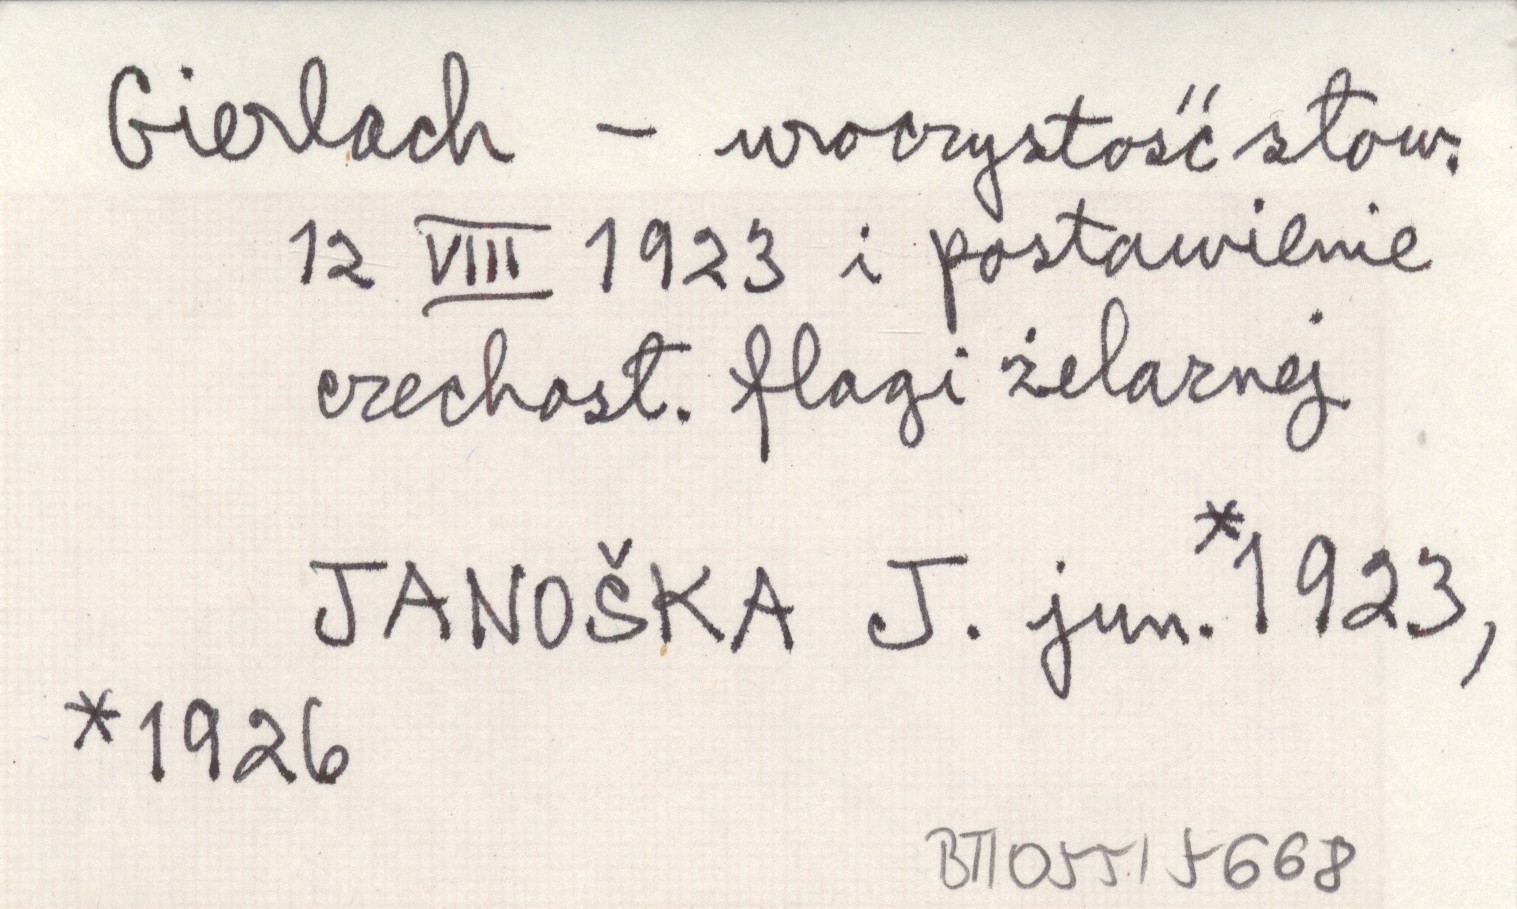 Gierlach - uroczystość słow.
12 VIII 1923 i postawienie
czechosł. flagi żelaznej
JANOŠKA J. jun. *1923,
*1926
BTI 055 / 5668